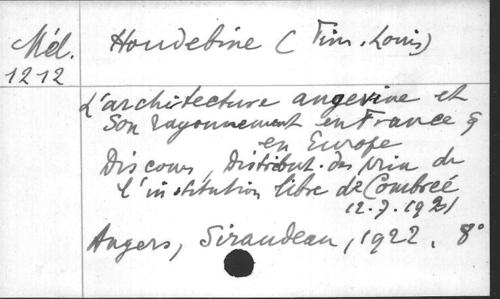 Mél.
1212
Houdebine (Tim. Louis)
L'architecture angevine et
son rayonnement en France &
en Europe
Discours, Distribut. des prix de
l'institution libre de Combrée
12.7.1921
Angers, Siraudeau, 1922. 8°